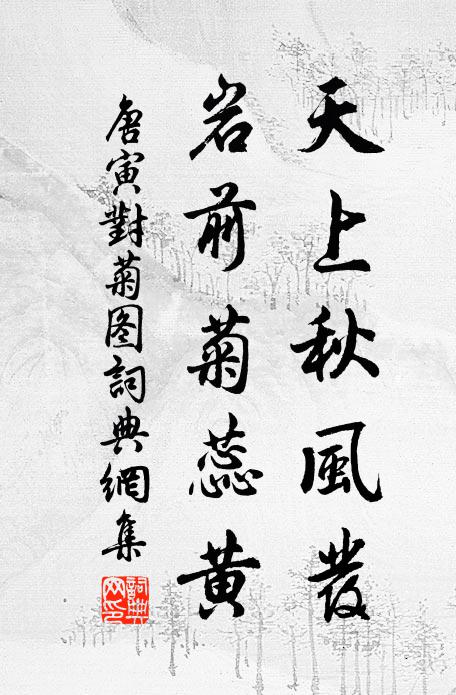 天上秋風發
岩前菊蕊黄
唐寅對菊图詞典網集
詞典網印